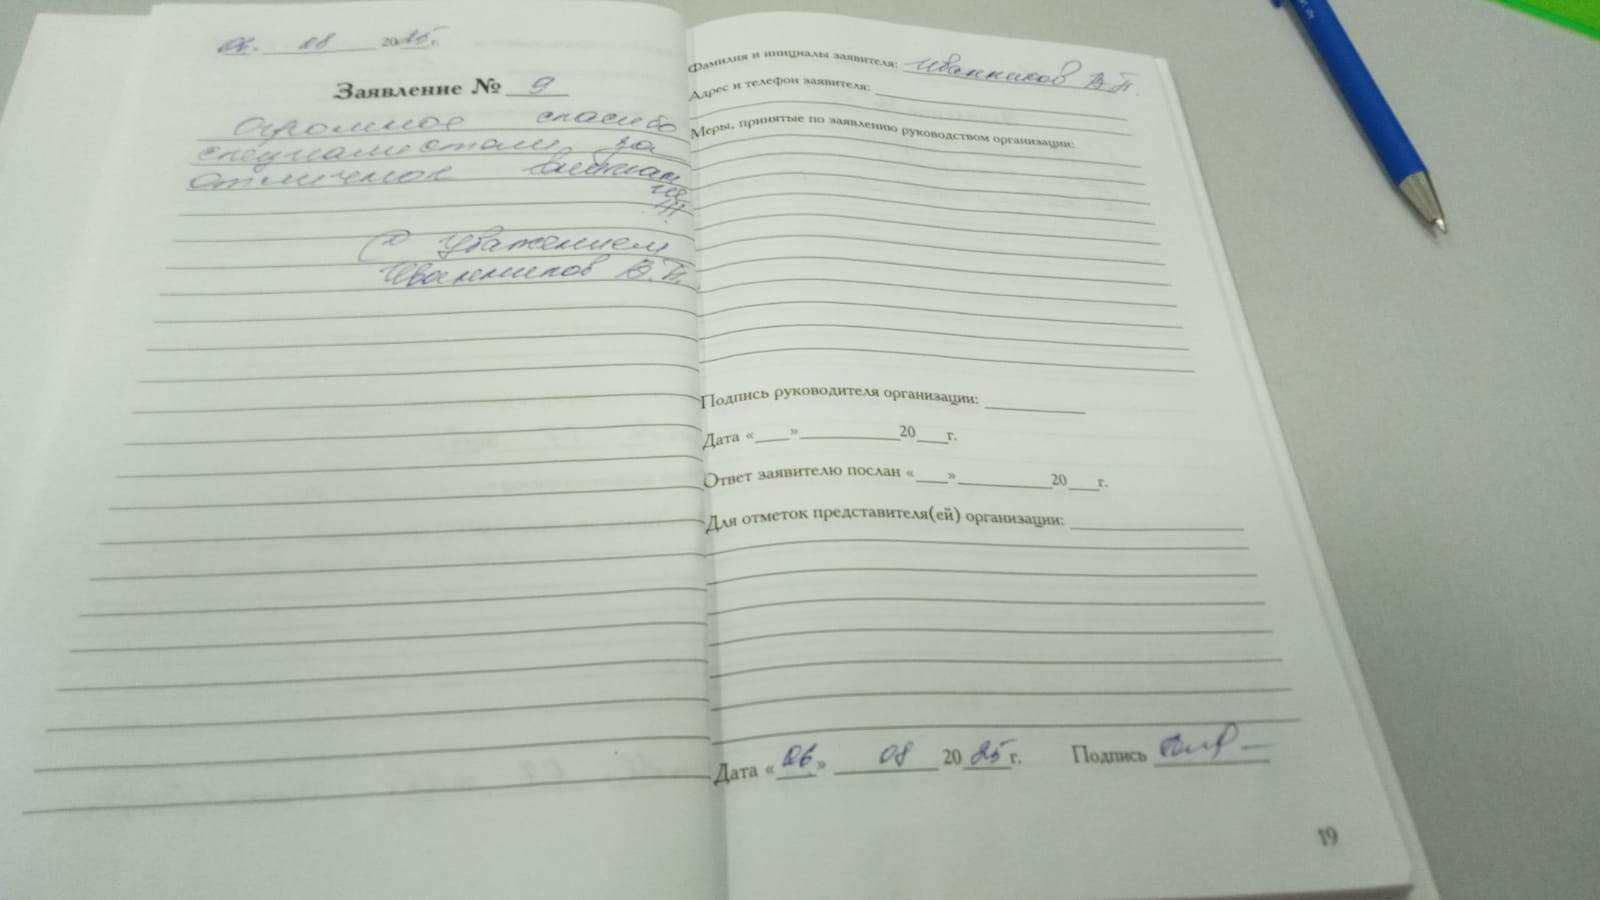 06. 08 2025г.
Заявление № 9
Огромное спасибо
специалистам за
отличное вниман
ие
С уважением
Иванников В.П.
Фамилия и инициалы заявителя: Иванников В.П.
Адрес и телефон заявителя:
Меры, принятые по заявлению руководством организации:
Подпись руководителя организации:
Дата «___»__________20___г.
Ответ заявителю послан «___»__________20___г.
Для отметок представителя(ей) организации:
Дата «06» 08 2025г. Подпись
19